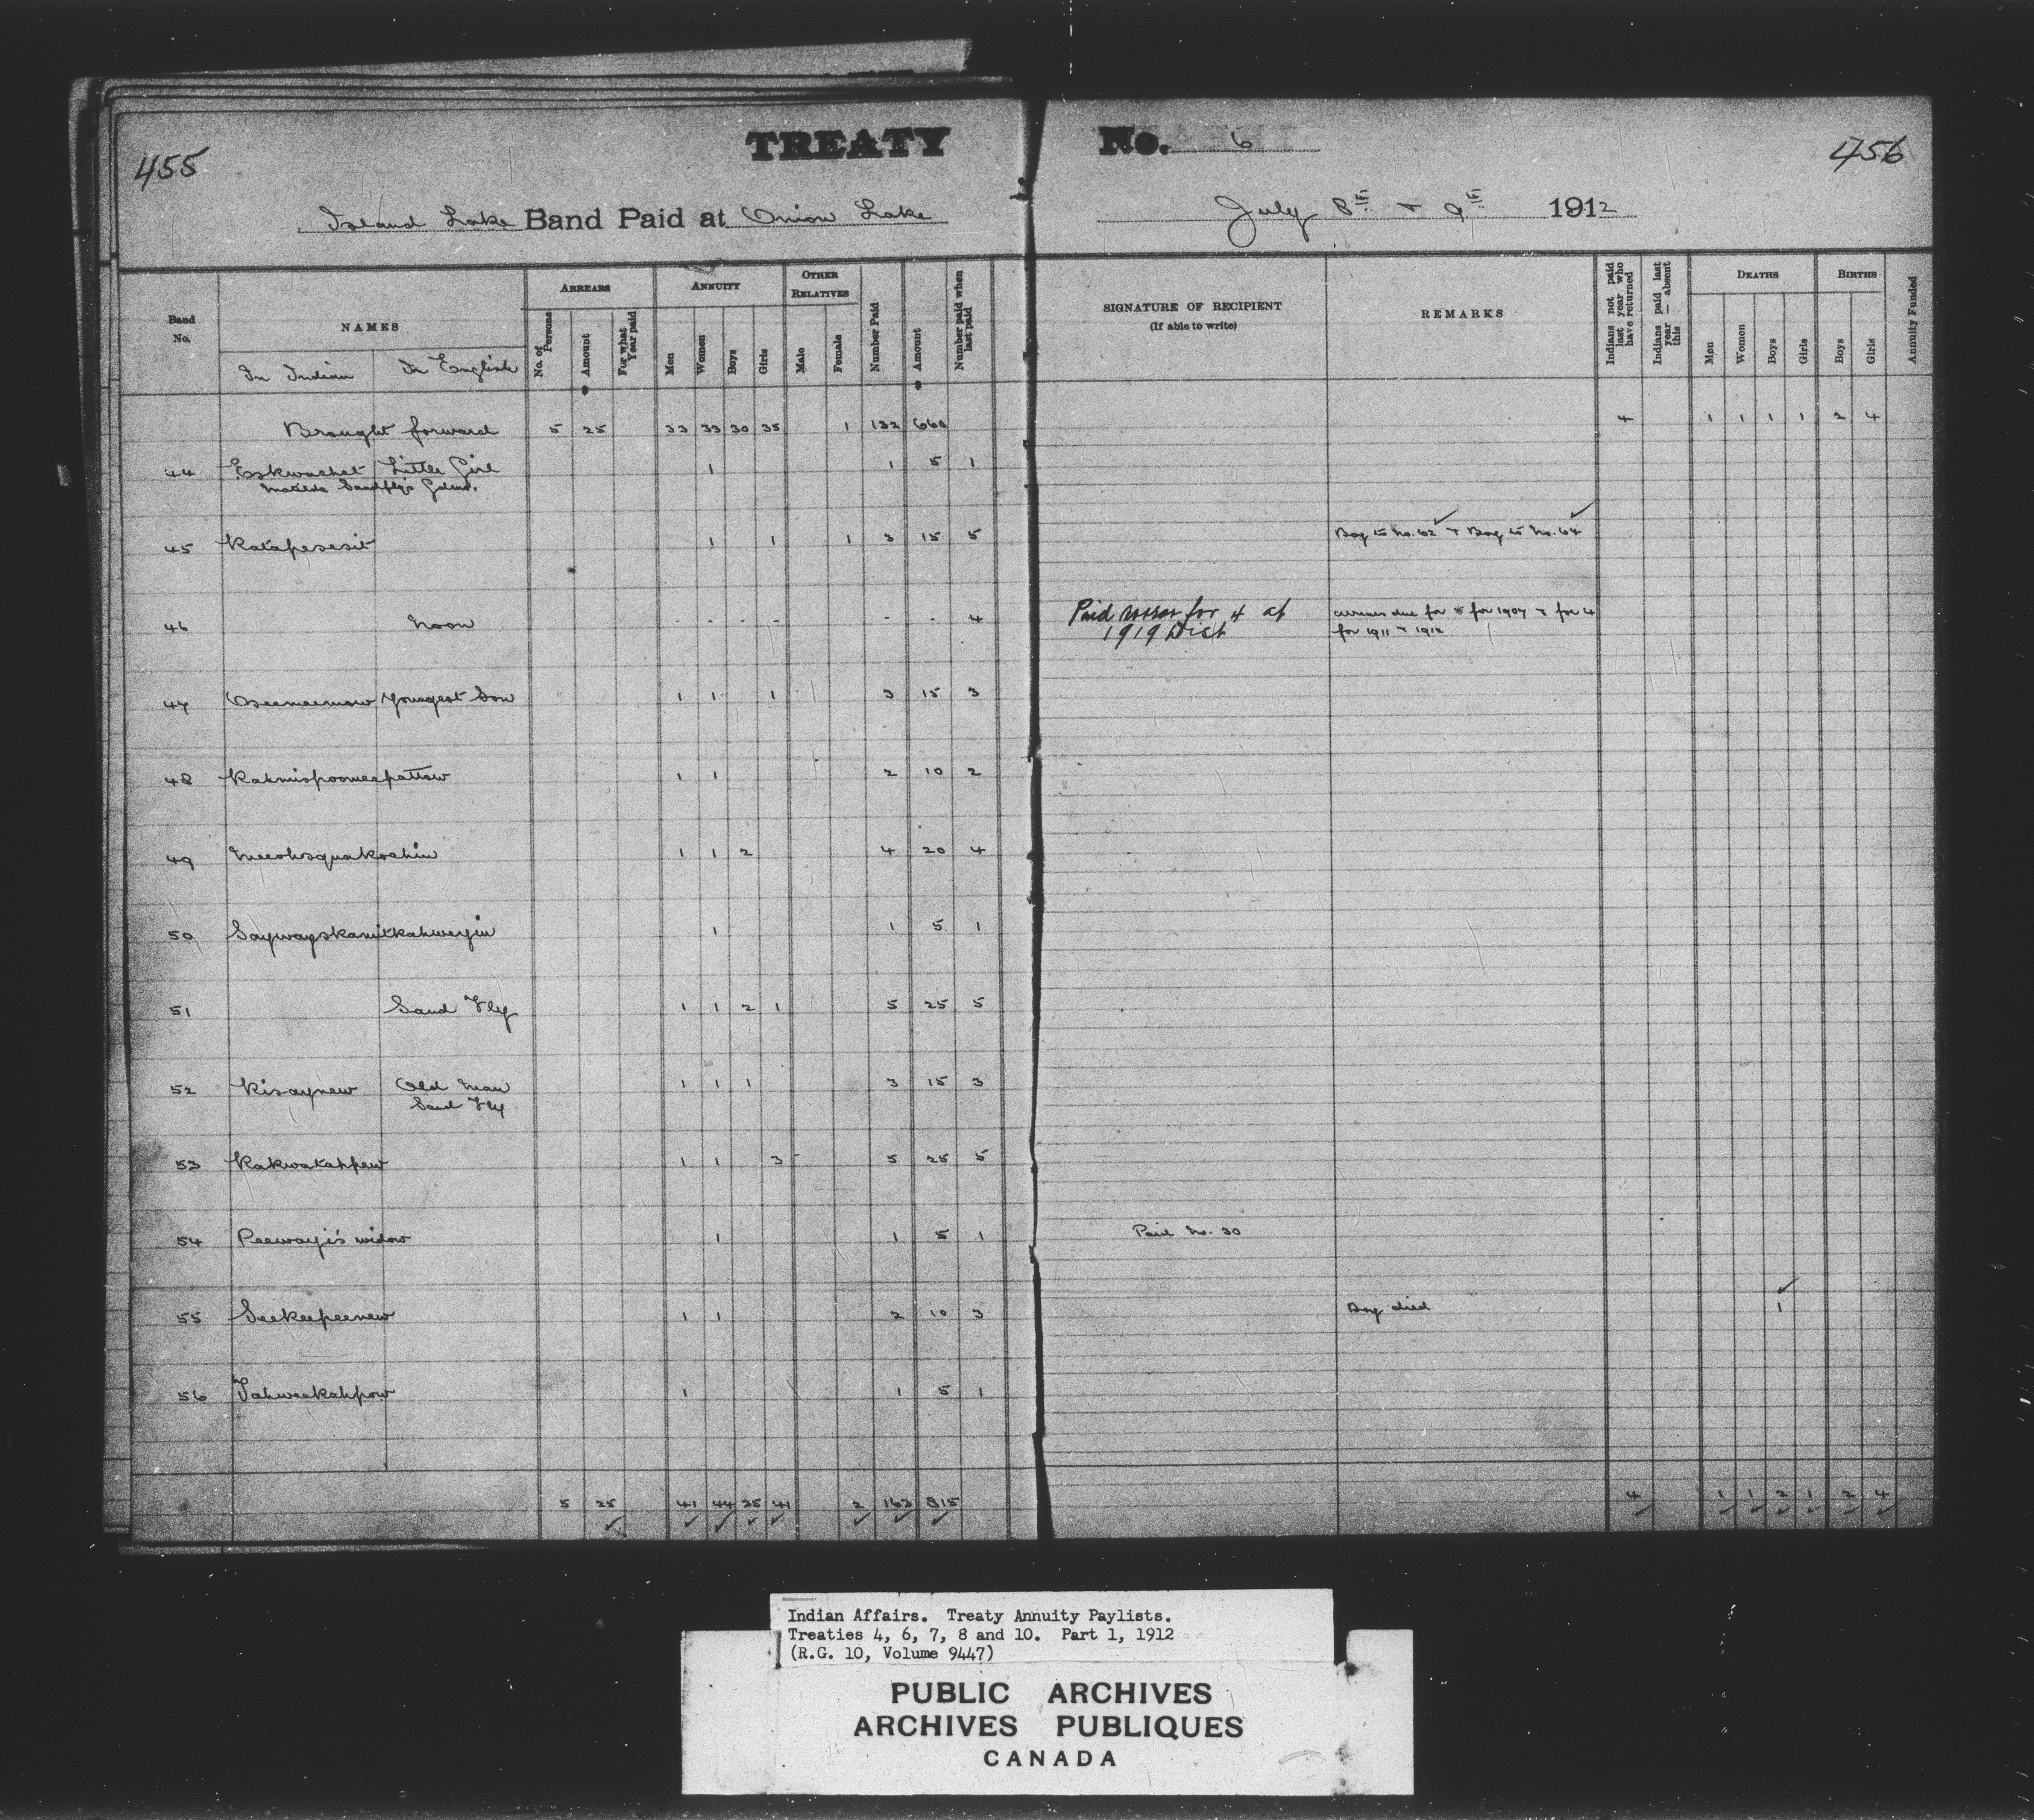 455
TREATY No. 6
456
Island Lake Band Paid at Onion Lake July 8th + 9th 1912
Band No.
NAMES
In Indian In English
ARREARS
No. of Persons
Amount
For what Year paid
ANNUITY
Men
Women
Boys
Girls
OTHER RELATIVES
Male
Female
Number Paid
Amount
Number paid when last paid
SIGNATURE OF RECIPIENT
(If able to write)
REMARKS
Indians not paid last year who have returned
Indians paid last year — absent this
DEATHS
Men
Women
Boys
Girls
BIRTHS
Boys
Girls
Annuity Funded
Brought forward 5 25 33 33 30 35 1 132 660 4 1 1 1 1 2 4
44 Eskwachat Little Girl 1 1 5 1
Matilda Sandfly's
45 Katapesesit 1 1 1 3 15 5 Boy to No. 62 + Boy to No. 64
46 Noon - - - - - - 4 Paid for 4 at 1919 Dist
arrears due for for 1907 + for 4
for 1911 + 1912
47 Oseeneemow Youngest Son 1 1 1 3 15 3
48 Kahmispooneepattaw 1 1 2 10 2
49 Neeohsquakochin 1 1 2 4 20 4
50 Saywayskamitkahweyin 1 1 5 1
51 Sand Fly 1 1 2 1 5 25 5
52 Kisaynew Old Man 1 1 1 3 15 3
Sand Fly
53 Kakwatahpew 1 1 3 5 25 5
54 Peewayi's widow 1 1 5 1 Paid No. 30
55 Seekeepeenew 1 1 2 10 3 Boy died 1
56 Tahweekahpow 1 1 5 1
5 25 41 44 35 41 2 163 815 4 1 1 2 1 2 4
Indian Affairs. Treaty Annuity Paylists.
Treaties 4, 6, 7, 8 and 10. Part 1, 1912
(R.G. 10, Volume 9447)
PUBLIC ARCHIVES
ARCHIVES PUBLIQUES
CANADA